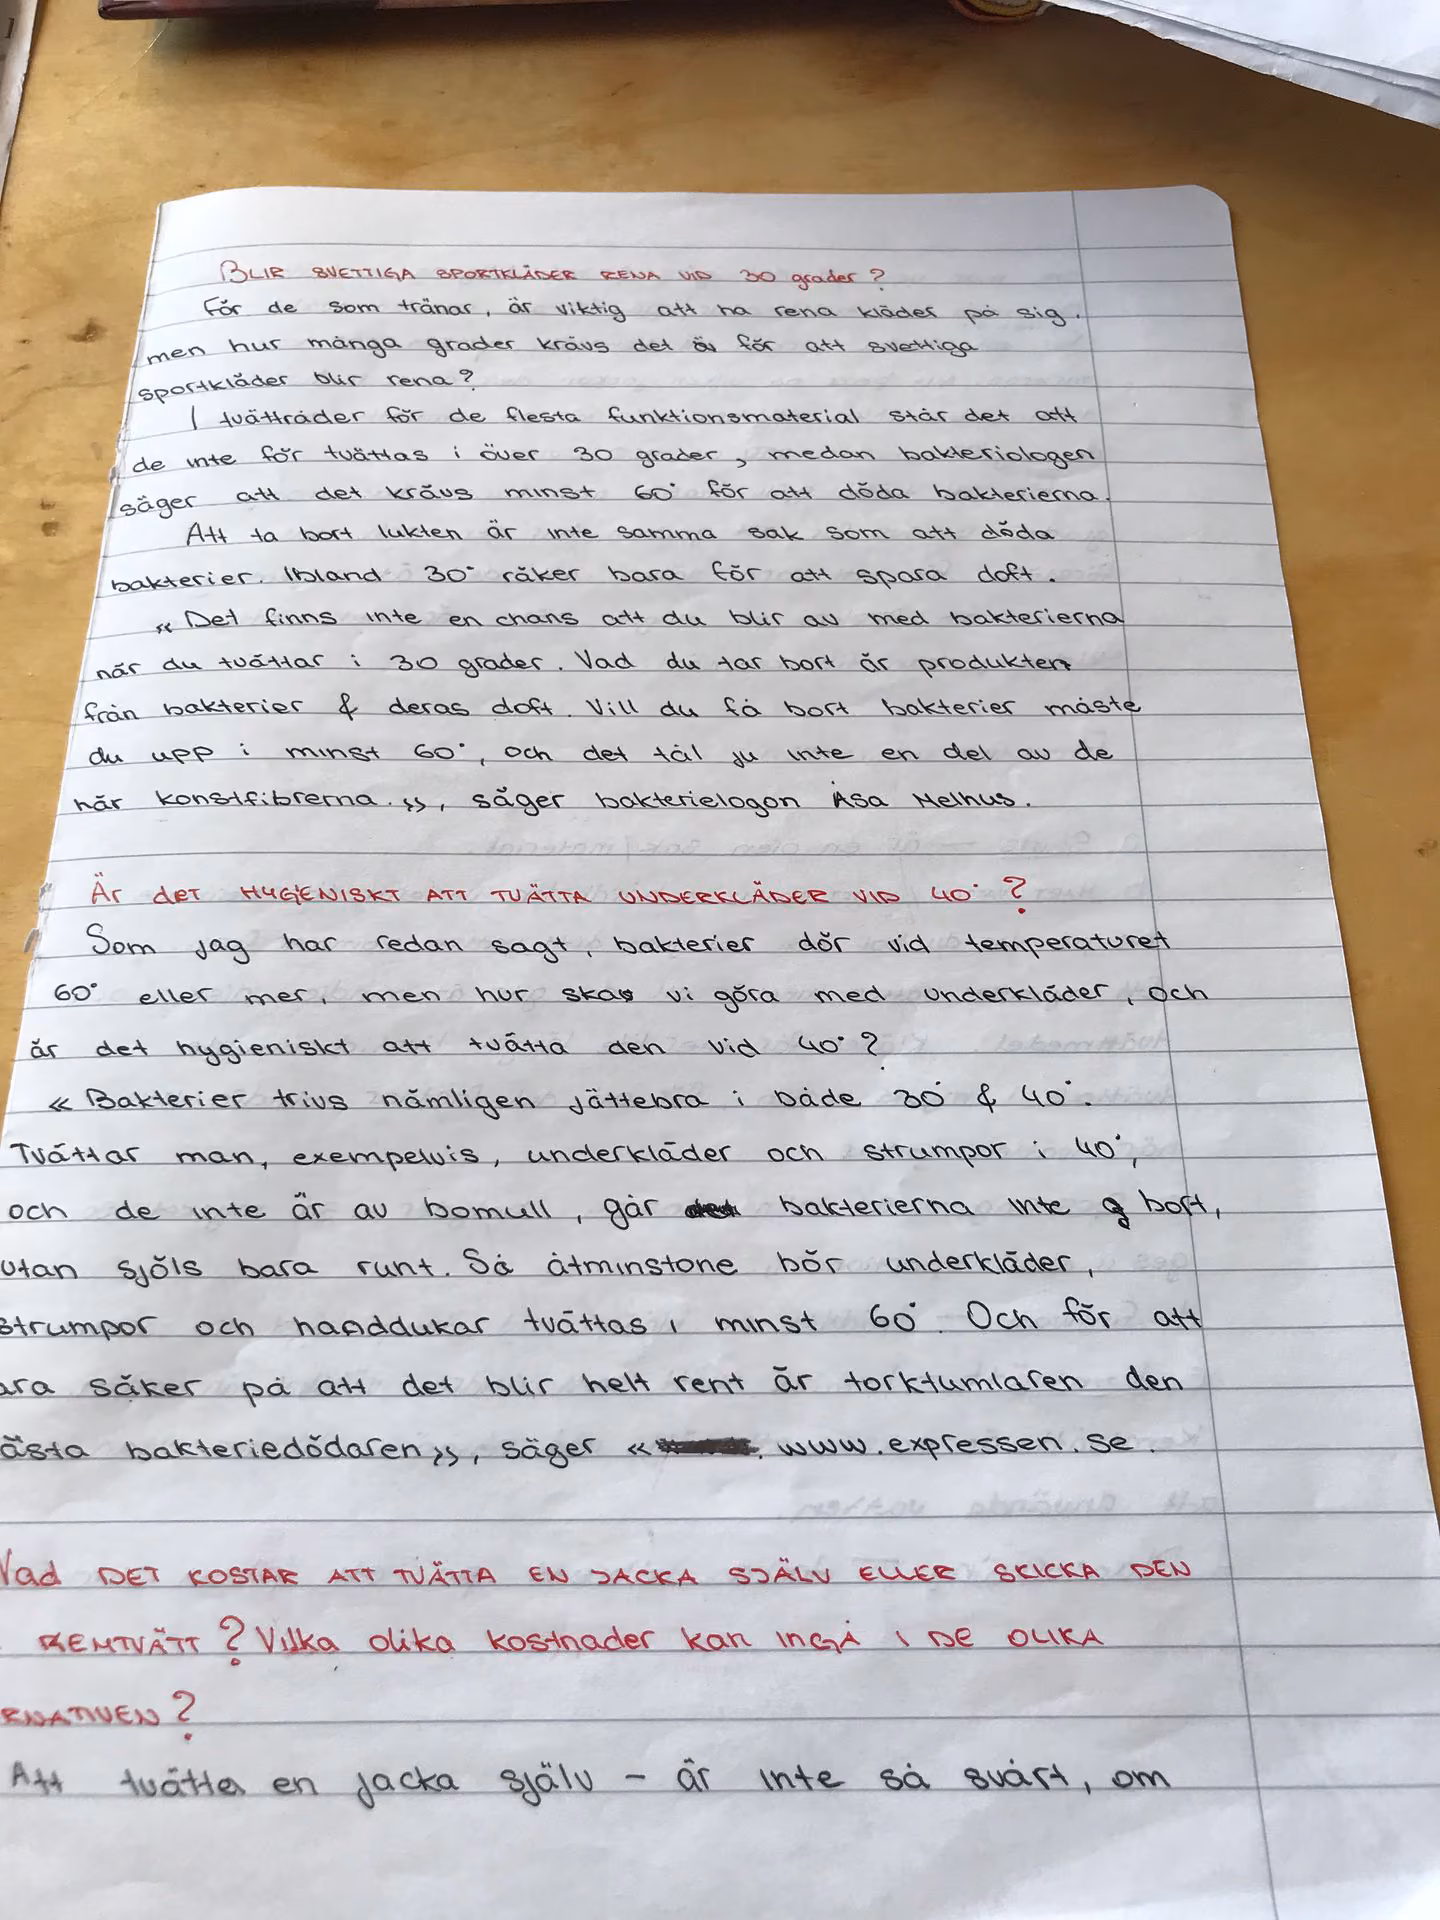 BLIR SVETTIGA SPORTKLÄDER RENA VID 30 grader?
För de som tränar, är viktig att ha rena kläder på sig.
men hur många grader krävs det för att svettiga
sportkläder blir rena?
I tvättråder för de flesta funktionsmaterial står det att
de inte för tvättas i över 30 grader, medan bakteriologen
säger att det krävs minst 60° för att döda bakterierna.
Att ta bort lukten är inte samma sak som att döda
bakterier. Ibland 30° räker bara för att spara doft.
« Det finns inte en chans att du blir av med bakterierna
när du tvättar i 30 grader. Vad du tar bort är produkten
från bakterier & deras doft. Vill du få bort bakterier måste
du upp i minst 60°, och det tål ju inte en del av de
här konstfibrerna.», säger bakterielogon Åsa Melhus.
Är det HYGIENISKT ATT TVÄTTA UNDERKLÄDER VID 40°?
Som jag har redan sagt, bakterier dör vid temperaturet
60° eller mer, men hur ska vi göra med underkläder, och
är det hygieniskt att tvätta den vid 40°?
« Bakterier trivs nämligen jättebra i både 30° & 40°.
Tvättar man, exempelvis, underkläder och strumpor i 40°,
och de inte är av bomull, går bakterierna inte bort,
utan sjöls bara runt. Så åtminstone bör underkläder,
strumpor och handdukar tvättas i minst 60°. Och för att
ara säker på att det blir helt rent är torktumlaren den
ästa bakteriedödaren», säger « www.expressen.se.
Vad DET KOSTAR ATT TVÄTTA EN JACKA SJÄLV ELLER SKICKA DEN
KEMTVÄTT? Vilka olika kostnader kan INGÅ I DE OLIKA
RNATIVEN?
Att tvätta en jacka själv - är inte så svårt, om